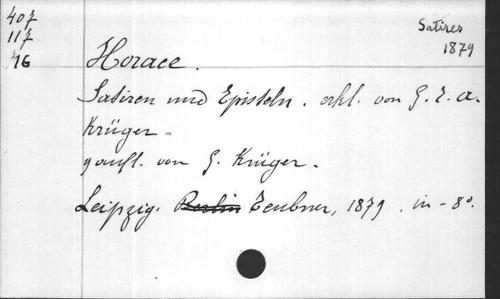 407
117
16
Satires
1879
Horace.
Satiren und Episteln. erkl. von G. T. A.
Krüger.
9 aufl. von G. Krüger.
Leipzig. Berlin Teubner, 1879. in-8°.